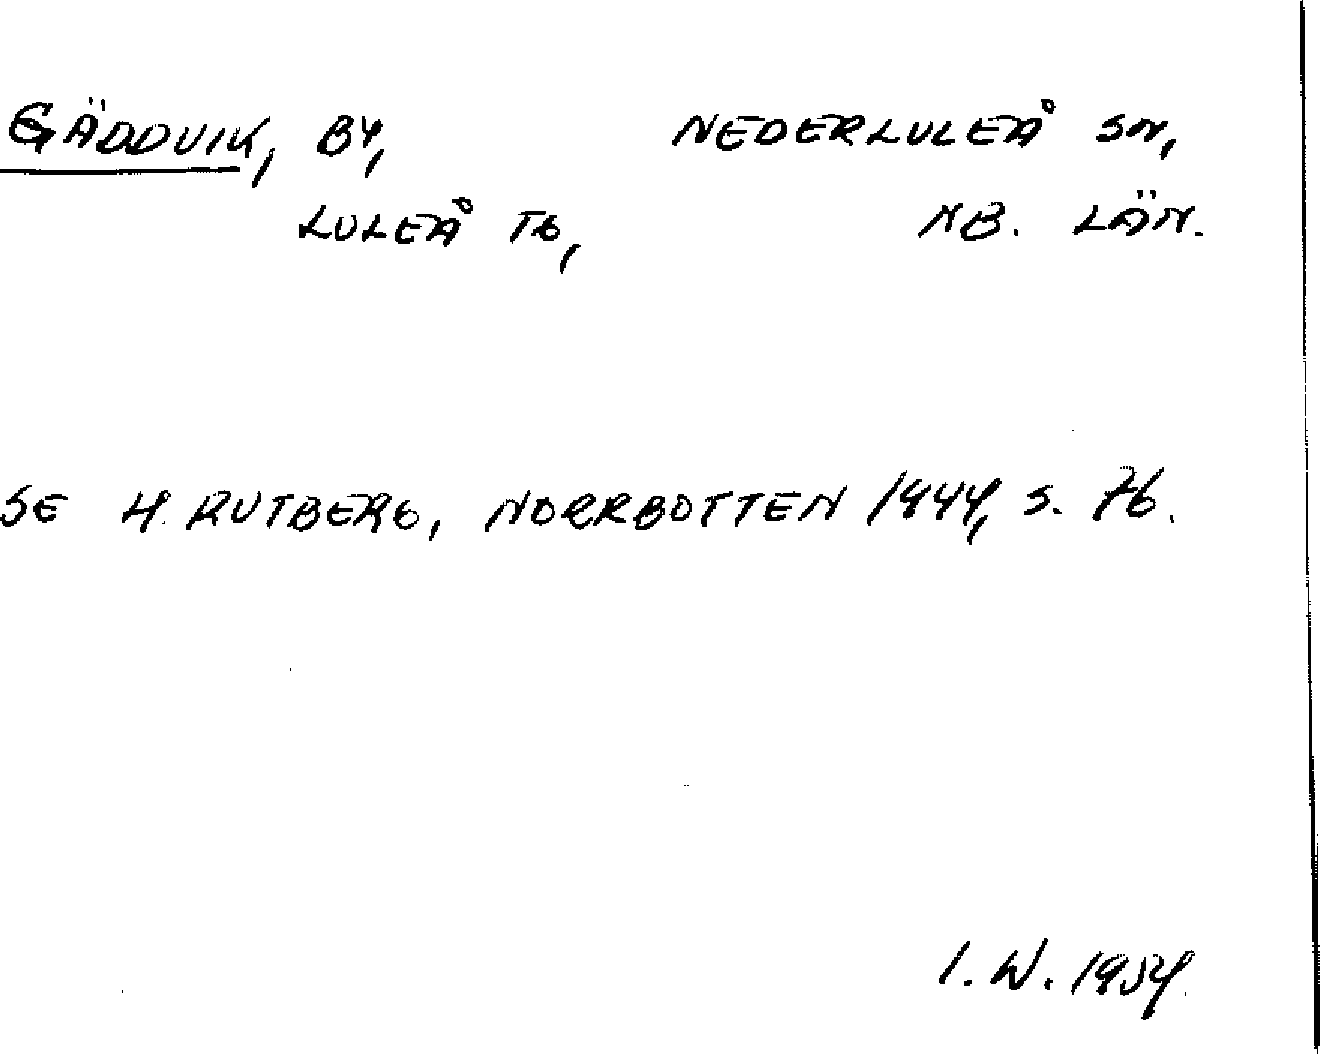 GÄDDVIK, BY, NEDERLULEÅ SN,
LULEÅ TG, NB. LÄN.
SE H. RUTBERG, NORRBOTTEN 1944, S. 76.
I. W. 1954.